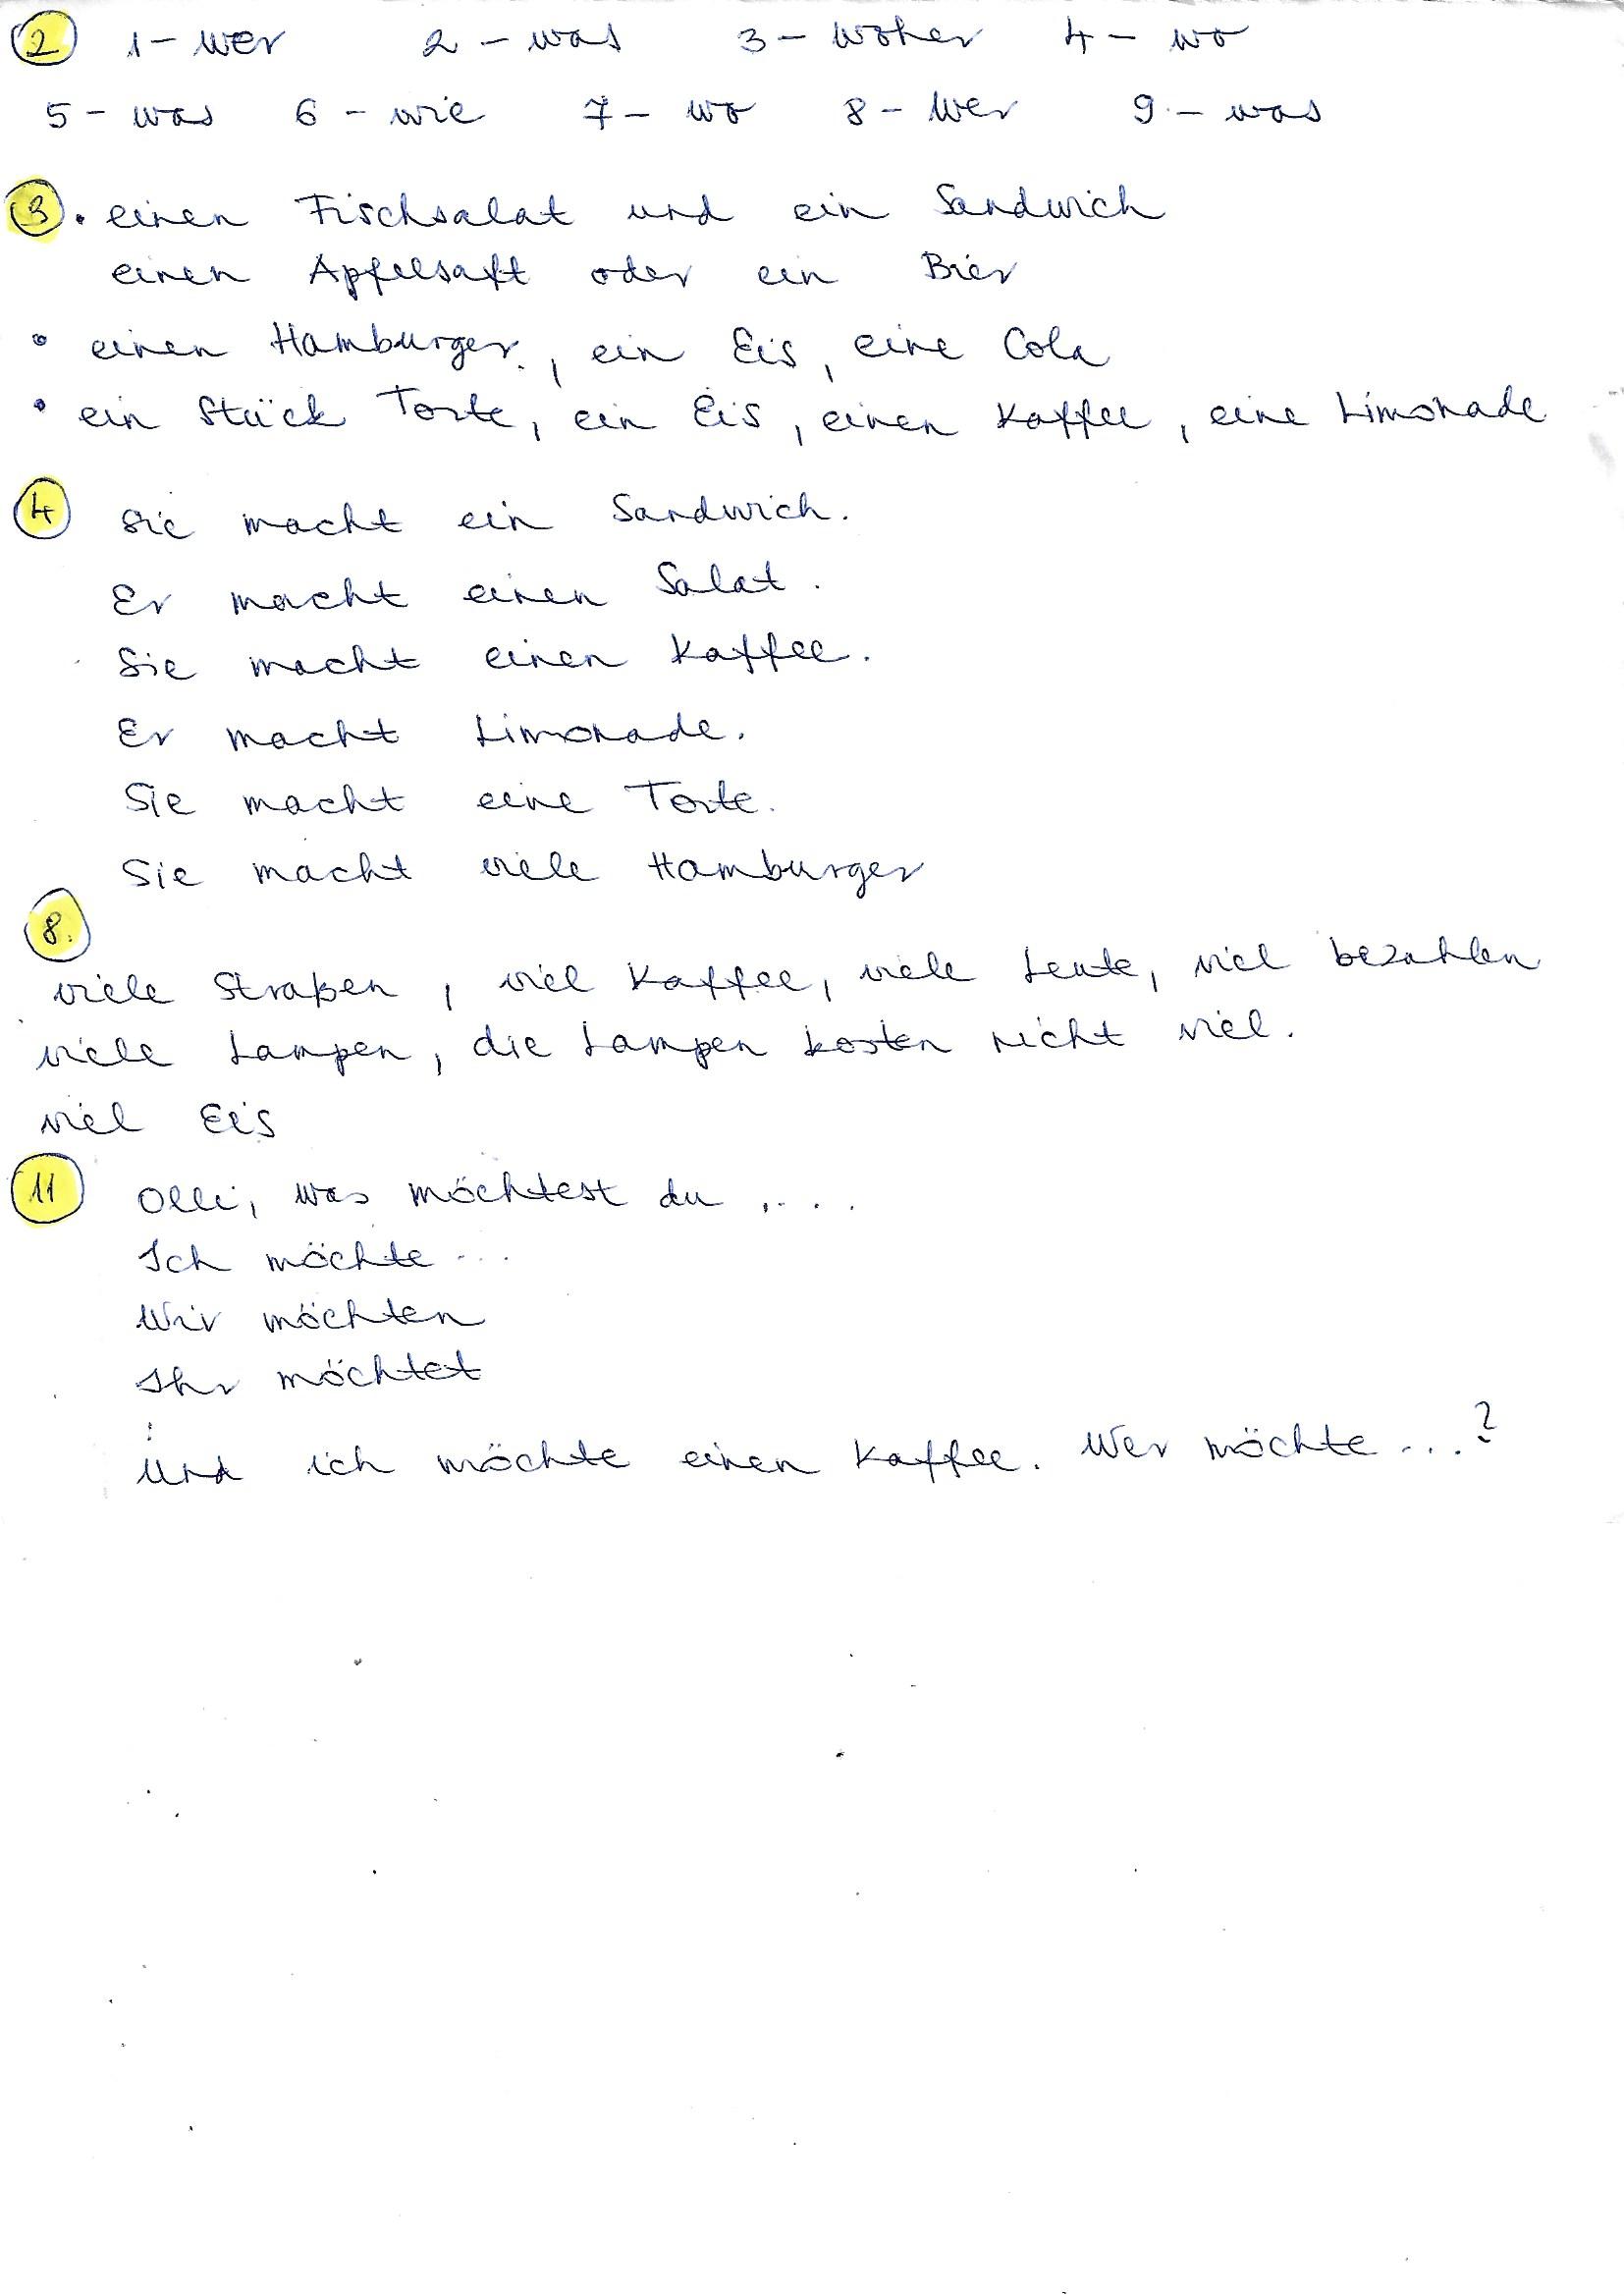 2 1 - wer 2 - was 3 - woher 4 - wo
5 - was 6 - wie 7 - wo 8 - wer 9 - was
3 • einen Fischsalat und ein Sandwich
einen Apfelsaft oder ein Bier
• einen Hamburger, ein Eis, eine Cola
• ein Stück Torte, ein Eis, einen Kaffee, eine Limonade
4 Sie macht ein Sandwich.
Er macht einen Salat.
Sie macht einen Kaffee.
Er macht Limonade.
Sie macht eine Torte.
Sie macht viele Hamburger
8.
viele Straßen, viel Kaffee, viele Leute, viel bezahlen
viele Lampen, die Lampen kosten nicht viel.
viel Eis
11 Olli, was möchtest du ....
Ich möchte ...
Wir möchten
Ihr möchtet
⋮
Und ich möchte einen Kaffee. Wer möchte ....?